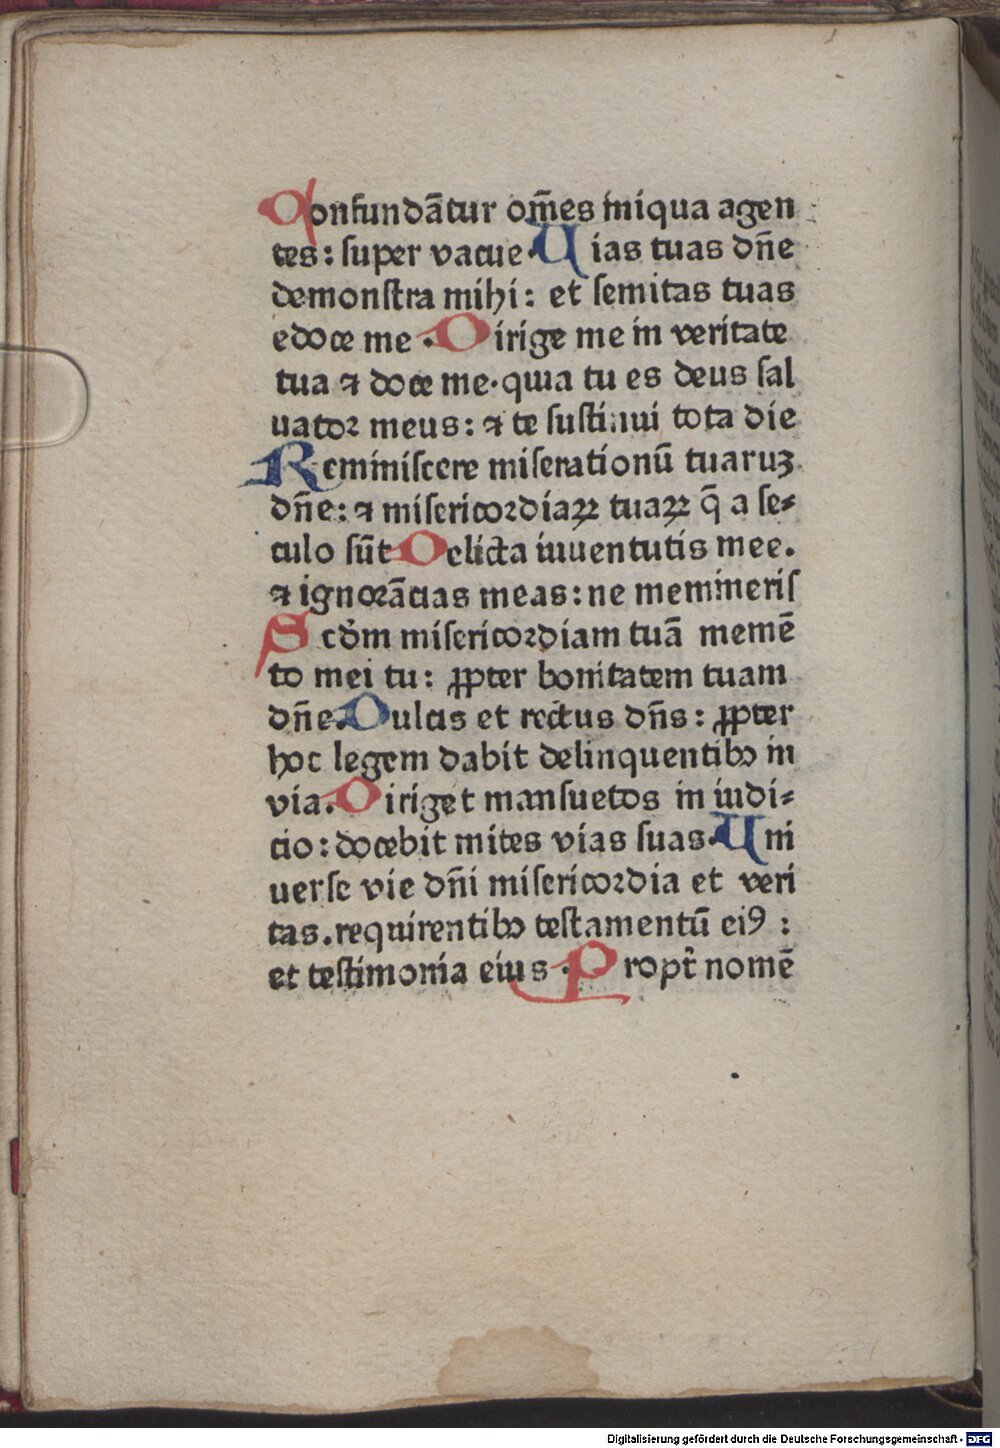 Confundãtur om̃es iniqua agen
tes: super vacue. Uias tuas dñe
demonſtra mihi: et ſemitas tuas
edoce me. Dirige me in veritate
tua ⁊ doce me. quia tu es deus ſal
uatoꝛ meus: ⁊ te ſuſtinui tota die
Reminiſcere miſerationũ tuaruꝫ
dñe: ⁊ miſericoꝛdiaꝝ tuaꝝ q̃ a ſe⸗
culo ſũt. Delicta iuuentutis mee.
⁊ ignoꝛãcias meas: ne memineriſ
Scd̃m miſericoꝛdiam tuã memẽ
to mei tu: ꝓpter bonitatem tuam
dñe. Dulcis et rectus dñs: ꝓpter
hoc legem dabit delinquentibꝰ in
via. Diriget manſuetos in iudi⸗
cio: docebit mites vias ſuas. Uni
uerſe vie dñi miſericoꝛdia et veri
tas. requirentibꝰ teſtamentũ eiꝰ:
et teſtimonia eius. Propt̃ nomẽ
Digitalisierung gefördert durch die Deutsche Forschungsgemeinschaft - DFG